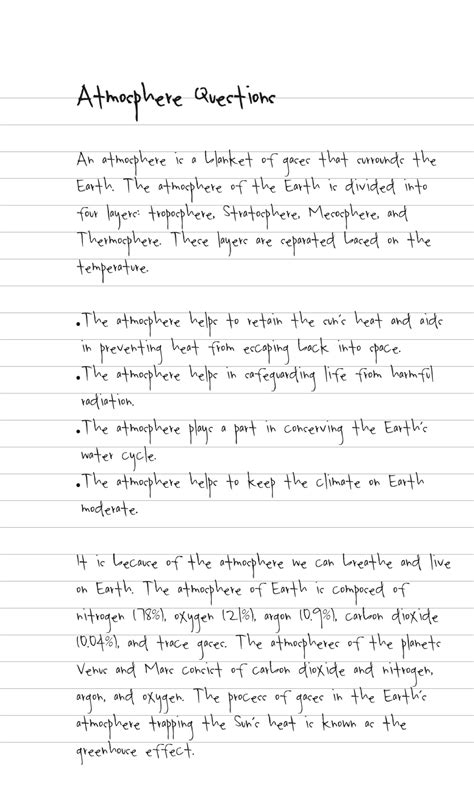 Atmosphere Questions
An atmosphere is a blanket of gases that surrounds the
Earth. The atmosphere of the Earth is divided into
four layers: troposphere, Stratosphere, Mesosphere, and
Thermosphere. These layers are separated based on the
temperature.
•The atmosphere helps to retain the sun's heat and aids
in preventing heat from escaping back into space.
•The atmosphere helps in safeguarding life from harmful
radiation.
•The atmosphere plays a part in conserving the Earth's
water cycle.
•The atmosphere helps to keep the climate on Earth
moderate.
It is because of the atmosphere we can breathe and live
on Earth. The atmosphere of Earth is composed of
nitrogen (78%), oxygen (21%), argon (0.9%), carbon dioxide
(0.04%), and trace gases. The atmospheres of the planets
Venus and Mars consist of carbon dioxide and nitrogen,
argon, and oxygen. The process of gases in the Earth's
atmosphere trapping the Sun's heat is known as the
greenhouse effect.